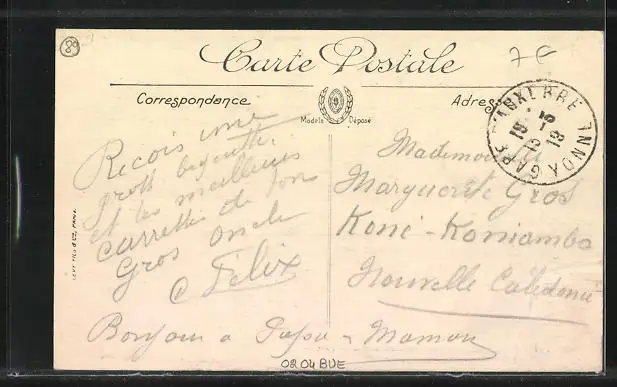 Carte Postale
7 €
Correspondance
Adresse
Modèle Déposé
GARE D'AUXERRE YONNE
19
5
13
19
Reçois une
grosse
et les meilleures
caresses de ton
Gros oncle
Félix
Mademoiselle
Marguerite Gros
Koné - Koniambo
Nouvelle Calédonie
Bonjour a Papa - Maman
LEVY FILS & Cie, PARIS
0204BUE